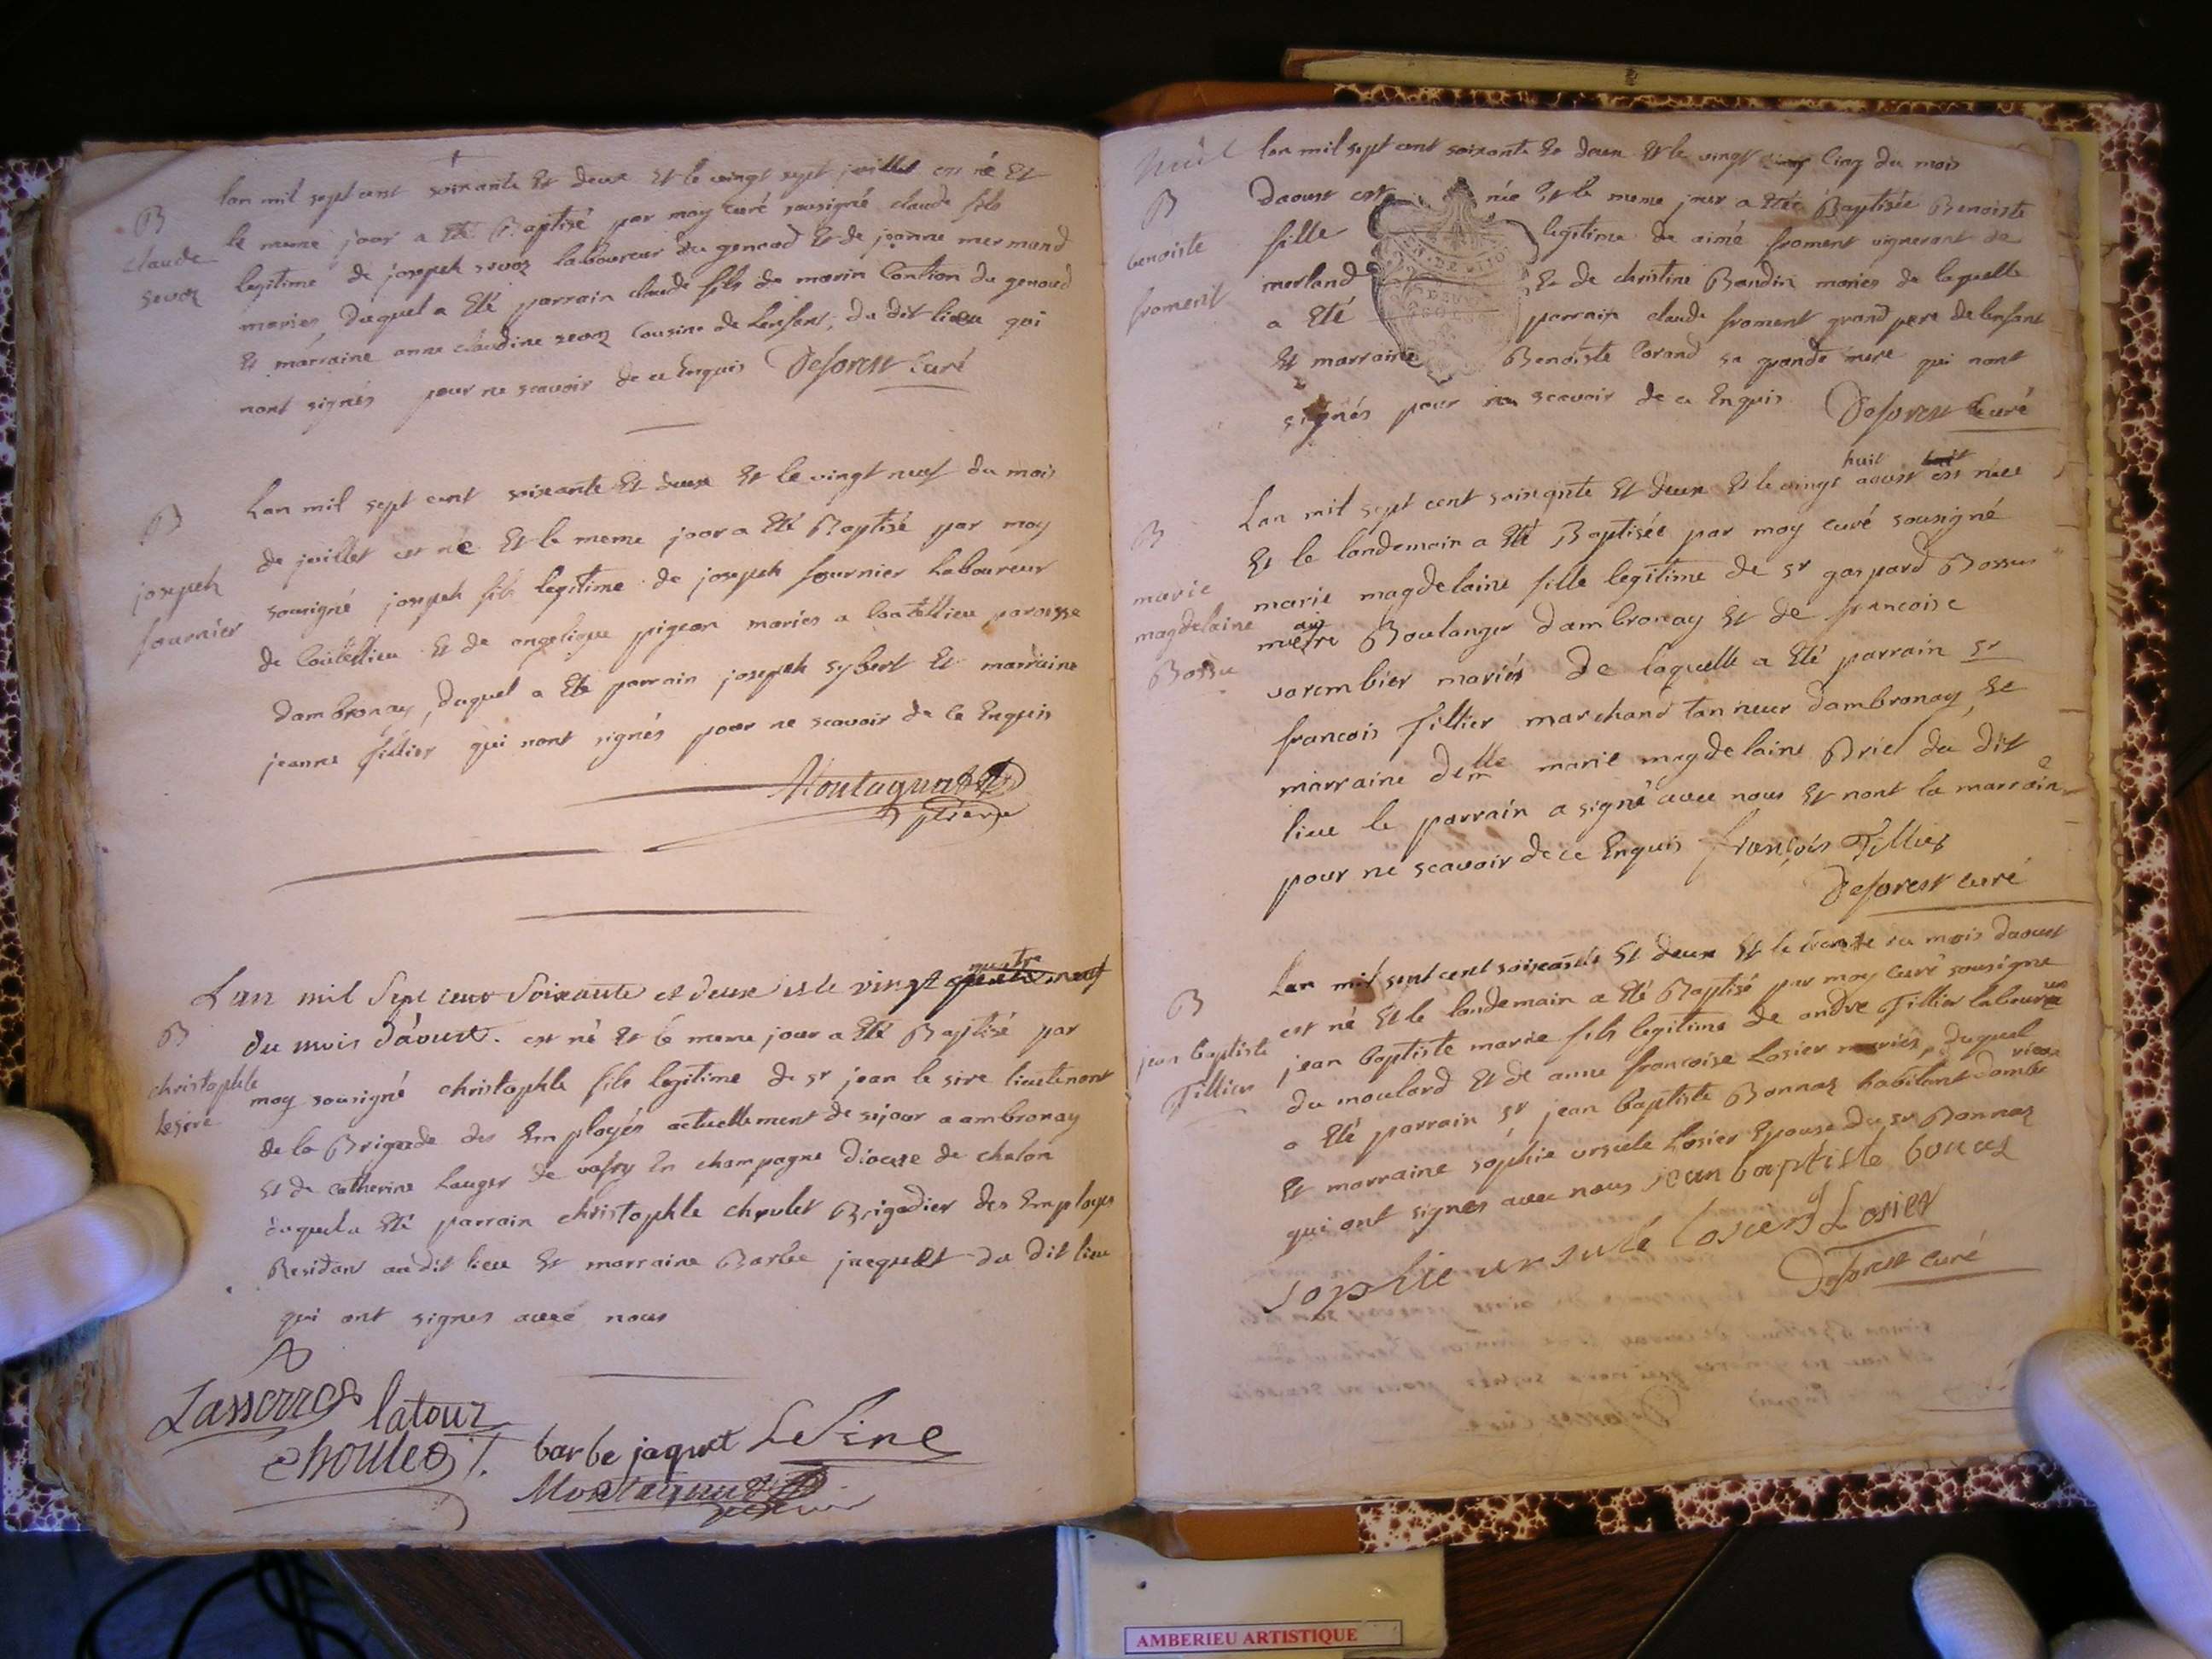 B
claude
sevoz
lan mil sept cent soixante Et deux Et le vingt sept juillet est né Et
le meme jour a Eté Baptisé par moy curé sousigné claude fils
legitime de joseph sevoz laboureur du genoud Et de joanne mermand
mariés, duquel a Eté parrain claude fils de marin Contion du genoud
Et marraine anne claudine sevoz Cousine de Lenfant, du dit lieu qui
nont signés pour ne scavoir de ce Enquis Deforest Curé
B
joseph
fournier
Lan mil sept cent soixante Et deux Et le vingt neuf du mois
de juillet est né Et le meme jour a Eté Baptisé par moy
sousigné joseph fils legitime de joseph fournier Laboureur
de Et de angelique pigeon mariés a paroisse
dambronay, duquel a Eté parrain joseph sybert Et marraine
jeanne fillier qui nont signés pour ne scavoir de ce Enquis
Montagnat
B
christophle
Lesire
Lan mil Sept cent Soixante et deux et le vingt quatre
du mois d'aoust. est né Et le meme jour a Eté Baptisé par
moy sousigné christophle fils legitime de sr jean le sire lieutenant
de la Brigade des Employés actuellement de sejour a ambronay
Et de catherine Lauger de vassy En champagne diocese de chalon
duquel a Eté parrain christophle choulet Brigadier des Employs
Residant audit lieu Et marraine Barbe jacquet du dit lieu
qui ont signes avec nous
Lasserre latour
choulet barbe jaquet LeSire
Montagnat
B
benoiste
froment
lan mil sept cent soixante Et deux Et le vingt Cinq du mois
daoust est née Et le meme jour a Eté Baptisée Benoiste
fille legitime de aimé froment vigneront de
merland Et de christine Baudin mariés de laquelle
a Eté parrain claude froment grand pere de lenfant
Et marraine Benoiste Corand sa grande mere qui nont
signés pour ne scavoir de ce Enquis Deforest Curé
B
marie
magdelaine
Bossu
Lan mil sept cent soixante Et deux Et le vingt huit aoust est née
Et le landemain a Eté Baptisée par moy curé sousigné
marie magdelaine fille legitime de sr gaspard Bossus
maitre Boulanger dambronay Et de francoise
varembier mariés de laquelle a Eté parrain sr
francois fillier marchand tanneur dambronay, Et
marraine demlle marie magdelaine Briel du dit
lieu le parrain a signé avec nous Et nont la marraine
pour ne scavoir de ce Enquis françois Tillier
Deforest curé
B
jean baptiste
Tillier
Lan mil sept cent soixante Et deux Et le trente du mois daoust
est né Et le landemain a Eté Baptisé par moy Curé sousigne
jean baptiste marie fils legitime de andre Tillier laboureur
du moulard Et de anne francoise Losier mariés, duquel
a Eté parrain sr jean baptiste Bonnaz habitant
Et marraine sophie ursule Losier Epouse du sr Bonnaz
qui ont signes avec nous jean baptiste bonaz
sophie ursule Losier
Deforest curé
AMBERIEU ARTISTIQUE